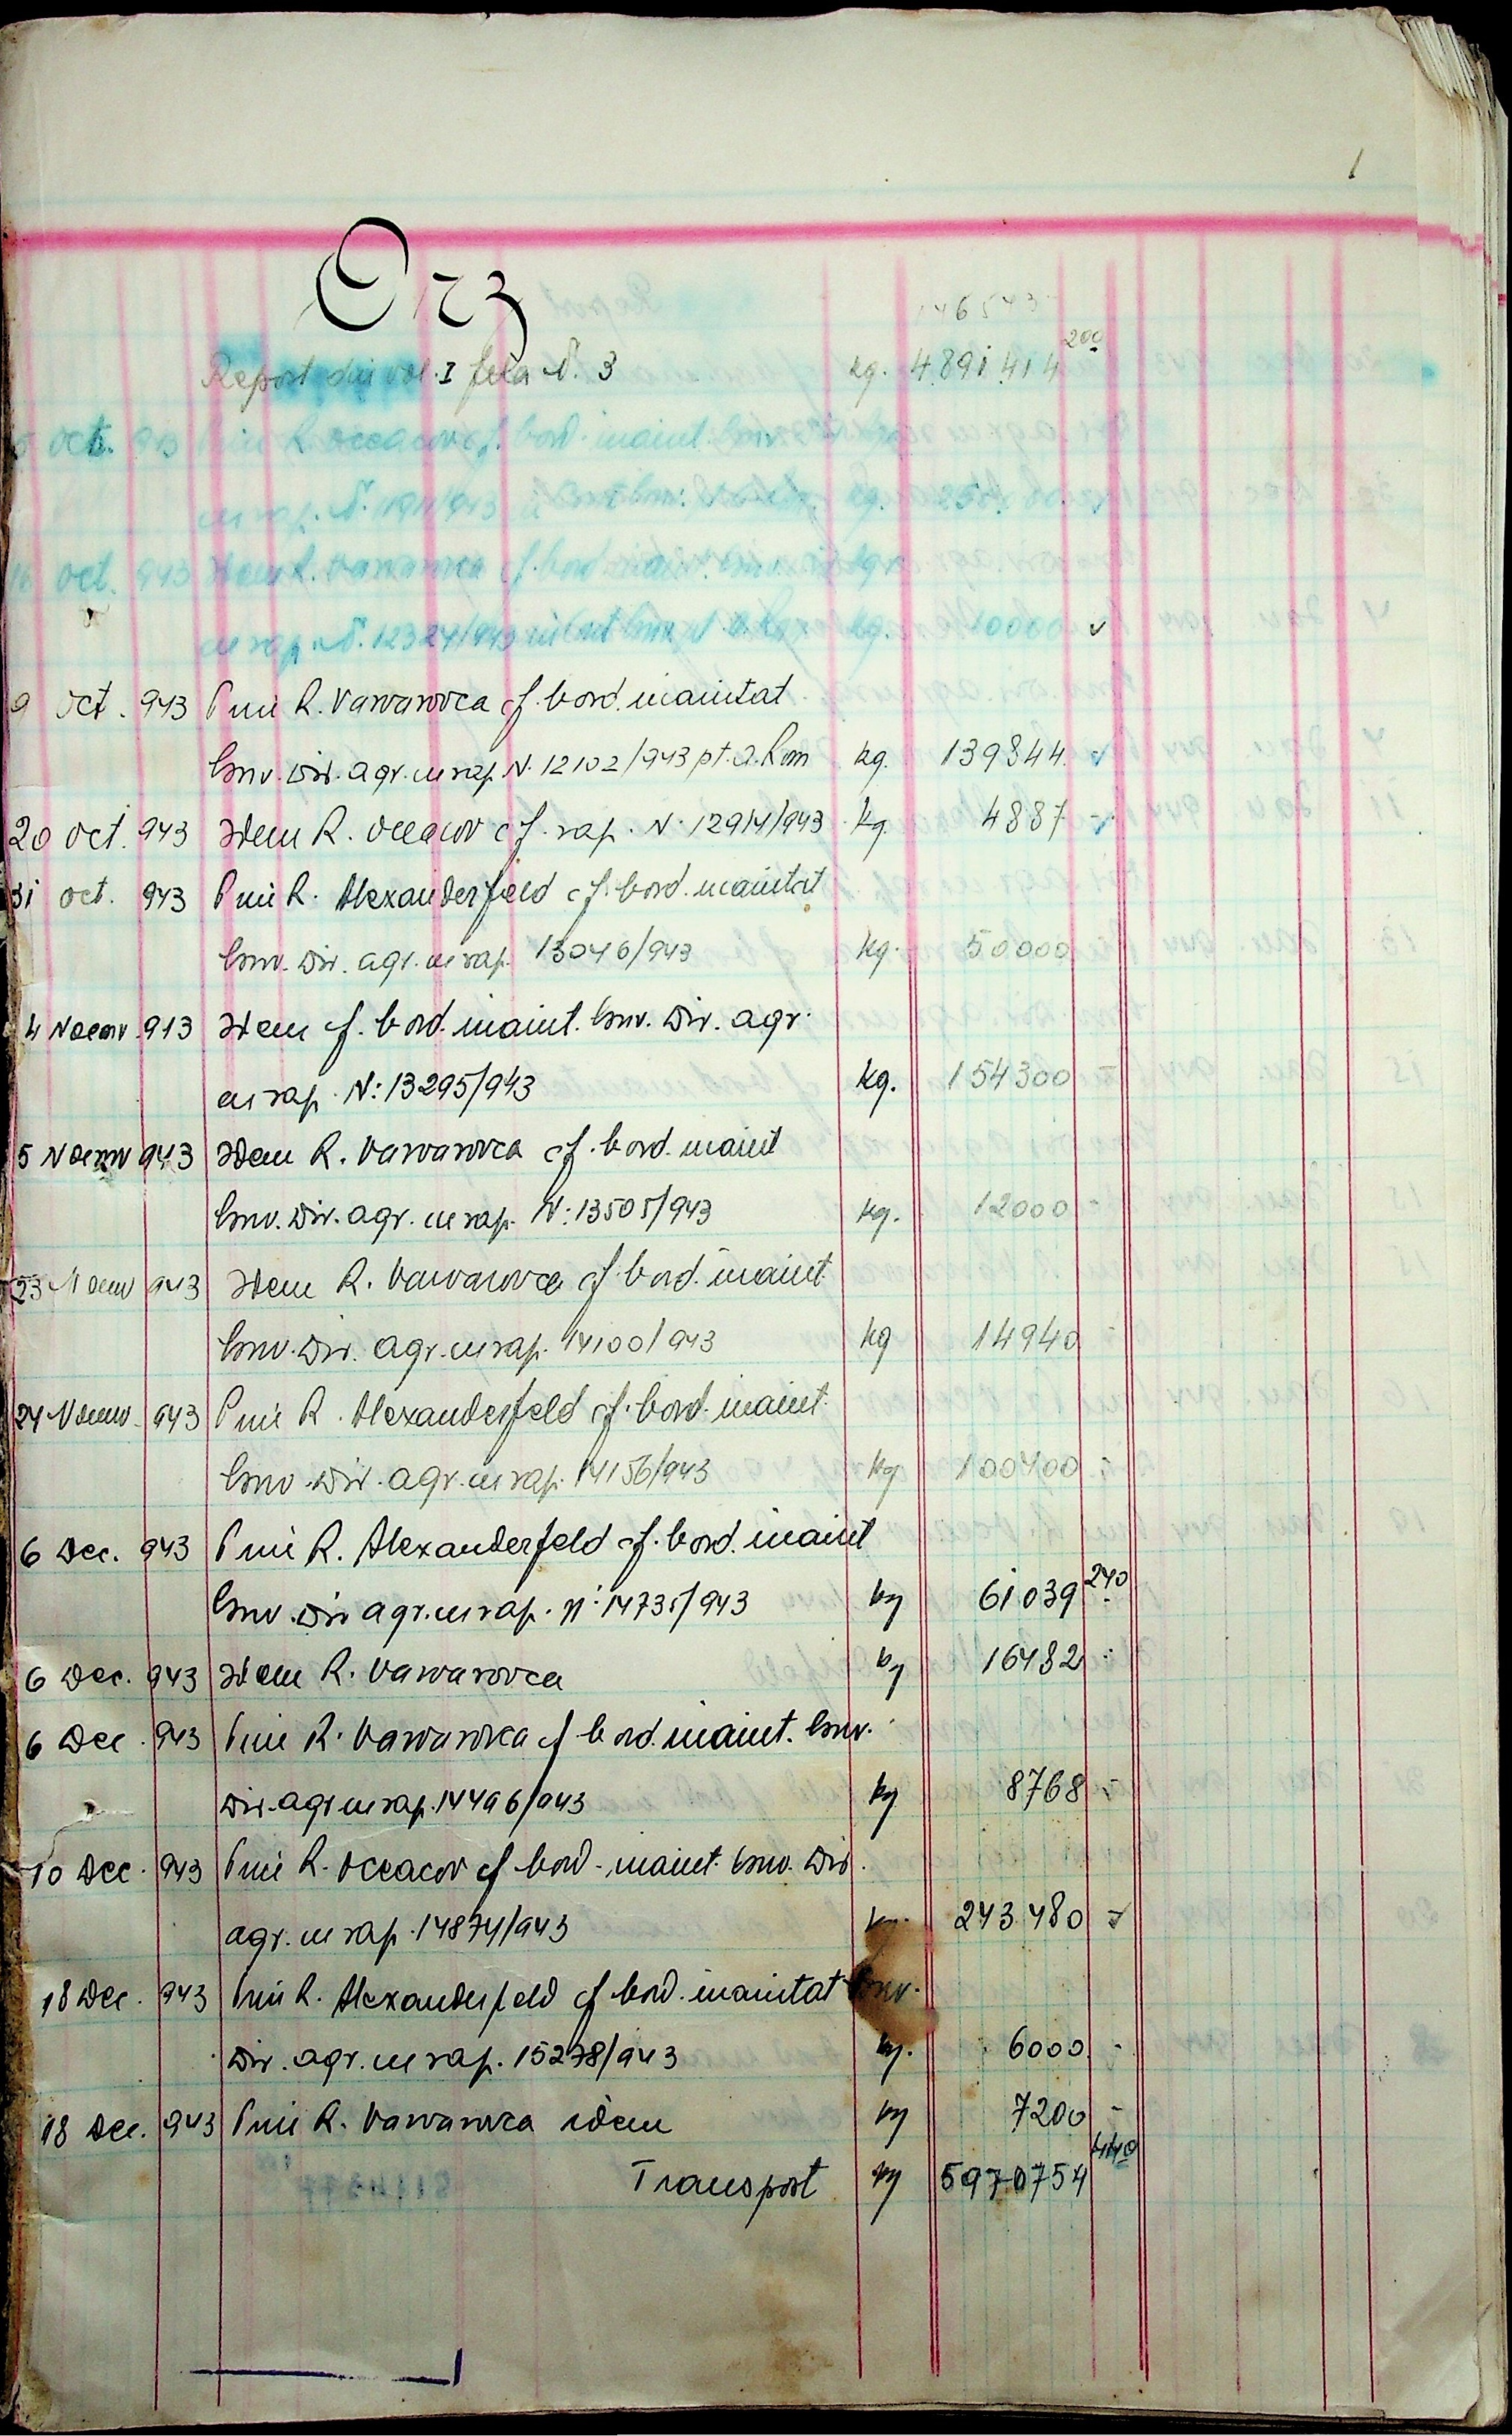 1
Orz
Report din vol. I fila N. 3 kg. 4891414 200
oct. 943 Prin R. Oceacov cf. bord. inaint.
cu rap. N. kg.
16 oct. 943 Idem R. Varvarovca cf. bord.
cu rap. N. 12324/943 kg. 10000
9 oct. 943 Prin R. Varvarovca cf. bord. inaintat
Dir. agr. cu rap. N. 12102/943 pt. a. Rom kg. 139844
20 oct. 943 Idem R. Oceacov cf. rap. N. 12914/943 kg. 4887 -
31 oct. 943 Prin R. Alexanderfeld cf. bord. inaintat
Dir. agr. cu rap. 13046/943 kg. 50000
4 Noemv. 943 Idem cf. bord. inaint. Dir. agr.
cu rap. N: 13295/943 kg. 154300 -
5 Noemv 943 Idem R. Varvarovca cf. bord. inaint
Dir. agr. cu rap. N: 13505/943 kg. 12000 -
23 Noemv 943 Idem R. Varvarovca cf. bord. inaint
Dir. agr. cu rap. 14100/943 kg 14940 -
24 Noemv. 943 Prin R. Alexanderfeld cf. bord. inaint.
Dir. agr. cu rap. 14156/943 kg 100400 -
6 Dec. 943 Prin R. Alexanderfeld cf. bord. inaint
Dir agr. cu rap. N: 14735/943 kg 61039 240
6 Dec. 943 Idem R. Varvarovca kg 16482 -
6 Dec. 943 Prin R. Varvarovca cf bord. inaint.
Dir. agr cu rap. 14496/943 kg 8768 -
10 Dec. 943 Prin R. Oceacov cf bord. inaint. Dir.
agr. cu rap. 14874/943 kg. 243480 -
18 Dec. 943 Prin R. Alexanderfeld cf bord. inaintat
Dir. agr. cu rap. 15278/943 kg. 6000 -
18 Dec. 943 Prin R. Varvarovca idem kg 7200 -
Transport kg 5970754 440